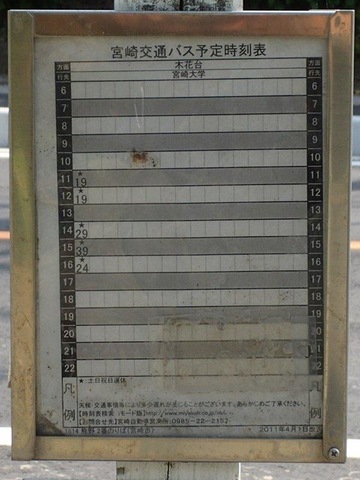 宮崎交通バス予定時刻表
方面 木花台 方面
行先 宮崎大学 行先
6 6
7 7
8 8
9 9
10 10
11 ★19 11
12 ★19 12
13 13
14 ★29 14
15 ★39 15
16 ★24 16
17 17
18 18
19 19
20 20
21 21
22 22
凡例
★:土日祝日運休
天候・交通事情等により多少遅れが生じることがございます。あらかじめご了承ください。
【時刻表検索 iモード版】http://www.miyakoh.co.jp/
【お問合せ先】宮崎自動車営業所:0985-22-2152
2011年4月1日改正